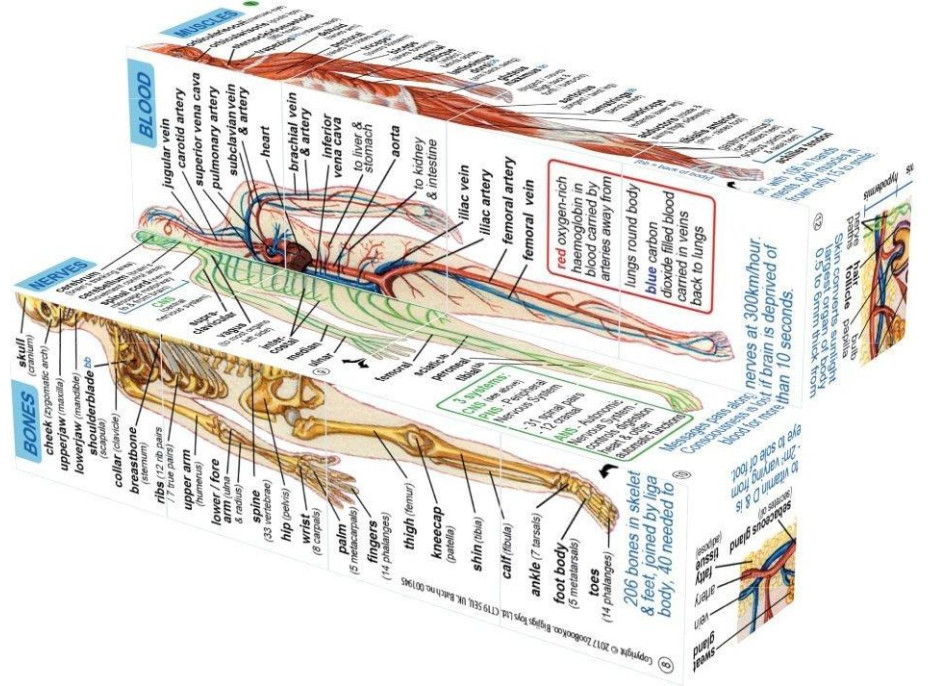 MUSCLES
deltoid
pectoral
triceps
biceps
external
oblique
gluteus
maximus
sartorius
hamstrings
quadriceps
adductors
tibialis anterior
achilles tendon
BLOOD
jugular vein
carotid artery
superior vena cava
pulmonary artery
subclavian vein
& artery
heart
brachial vein
& artery
inferior
vena cava
to liver &
stomach
aorta
to kidney
& intestine
iliac vein
iliac artery
femoral artery
femoral vein
red oxygen-rich
haemoglobin in
blood carried by
arteries away from
lungs round body
blue carbon
dioxide filled blood
carried in veins
back to lungs
NERVES
cerebrum
cerebellum
spinal cord
CNS
(central
nervous system)
supra-
clavicular
vagus
inter
costal
median
ulnar
femoral
sciatic
peroneal
tibial
3 systems:
CNS (see above)
PNS - Peripheral
Nervous System
- 31 spinal pairs
- 12 cranial
ANS - Autonomic
Nervous System -
controls digestion
heart & other
automatic functions
Messages travel along
nerves at 300km/hour.
Consciousness is
lost if brain is deprived of
blood for more
than 10 seconds.
BONES
skull
(cranium)
cheek (zygomatic arch)
upperjaw (maxilla)
lowerjaw (mandible)
shoulderblade bb
(scapula)
collar (clavicle)
breastbone
(sternum)
ribs (12 rib pairs
/ 7 true pairs)
upper arm
(humerus)
lower / fore
arm (ulna
& radius)
spine
(33 vertebrae)
hip (pelvis)
wrist
(8 carpals)
palm
(5 metacarpals)
fingers
(14 phalanges)
thigh (femur)
kneecap
(patella)
shin (tibia)
calf (fibula)
ankle (7 tarsals)
foot body
(5 metatarsals)
toes
(14 phalanges)
206 bones in skelet
& feet, joined by liga
body, 40 needed to
Copyright © 2017 ZooBooKoo. Bigjigs Toys Ltd. CT19 5EU, UK. Batch no: 001945
8
12
hypodermis
nerve
hair
follicle
papilla
Skin converts sunlight
largest organ of body
0 to 6mm thick from
to vitamin D & is
2m² varying from
eye to sole of foot.
sebaceous gland
fatty
tissue
(adipose)
artery
vein
sweat
gland